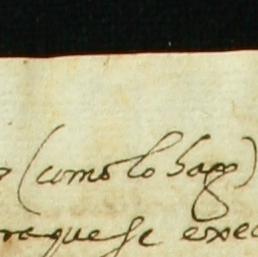 (como lo hago)
ra que se exec